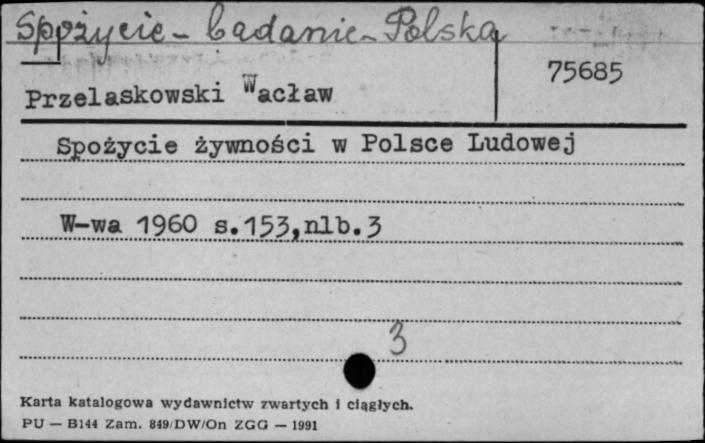 Spożycie - badanie - Polska
75685
Przelaskowski Wacław
Spożycie żywności w Polsce Ludowej
W-wa 1960 s.153,nlb.3
3
Karta katalogowa wydawnictw zwartych i ciągłych.
PU — B144 Zam. 849/DW/On ZGG — 1991